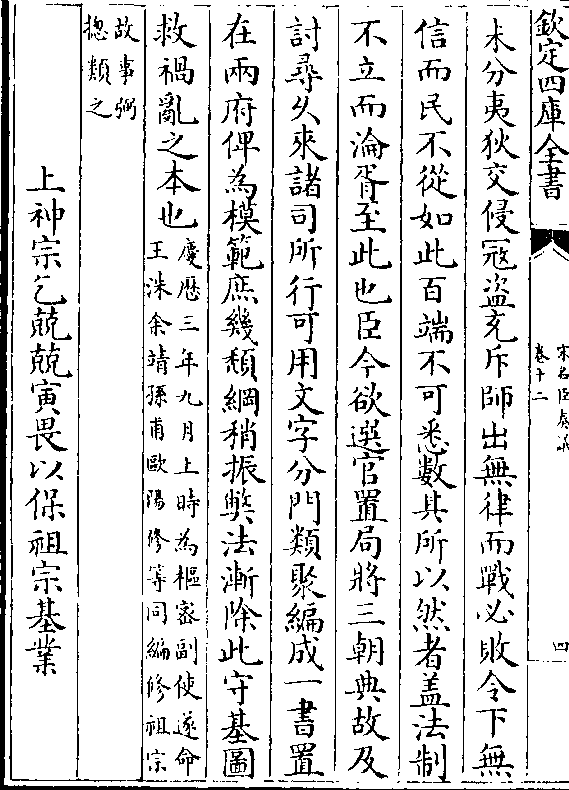 欽定四庫全書
宋名臣奏議
卷十二
四
未分夷狄交侵冦盗充斥師出無律而戰必敗令下無
信而民不從如此百端不可悉數其所以然者盖法制
不立而淪胥至此也臣今欲選官置局將三朝典故及
討尋久來諸司所行可用文字分門類聚編成一書置
在兩府俾為模範庶幾頽綱稍振弊法漸除此守基圖
救禍亂之本也
慶厯三年九月上時為樞密副使遂命
王洙余靖孫甫歐陽修等同編修祖宗
故事弼
揔類之
上神宗乞兢兢寅畏以保祖宗基業